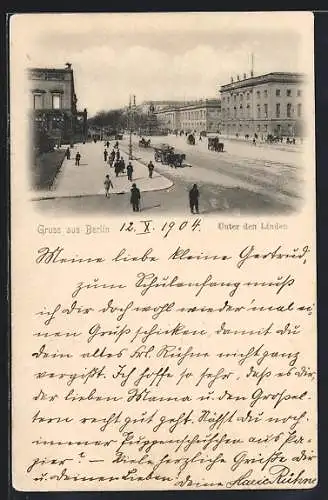 Gruss aus Berlin 12. X. 1904 Unter den Linden
Meine liebe kleine Gertrud,
zum Schulanfang muß
ich Dir doch wohl wieder 'mal ei-
nen Gruß schicken, damit du
dein altes Frl. Kühne nicht ganz
vergißt. Ich hoffe so sehr, daß es dir,
der lieben Mama u. den Großel-
tern recht gut geht. Nähst du noch
immer Puppenschuhchen aus Pa-
pier? — Viele herzliche Grüße dir
u. deinen Lieben. deine Maria Kühne